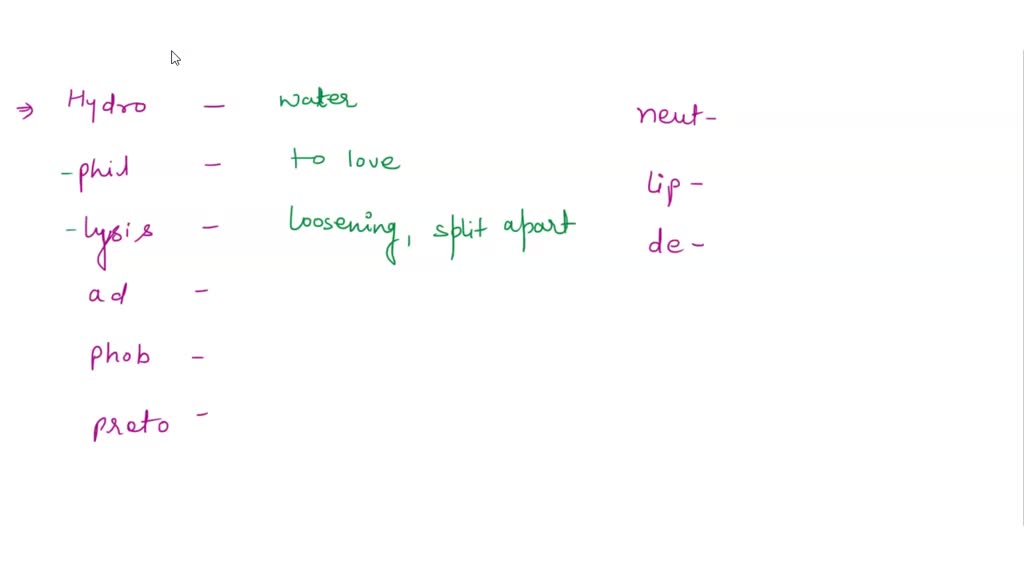 ⇒ Hydro - water
-phil - to love
-lysis - loosening, split apart
ad -
phob -
proto -
neut-
lip -
de -